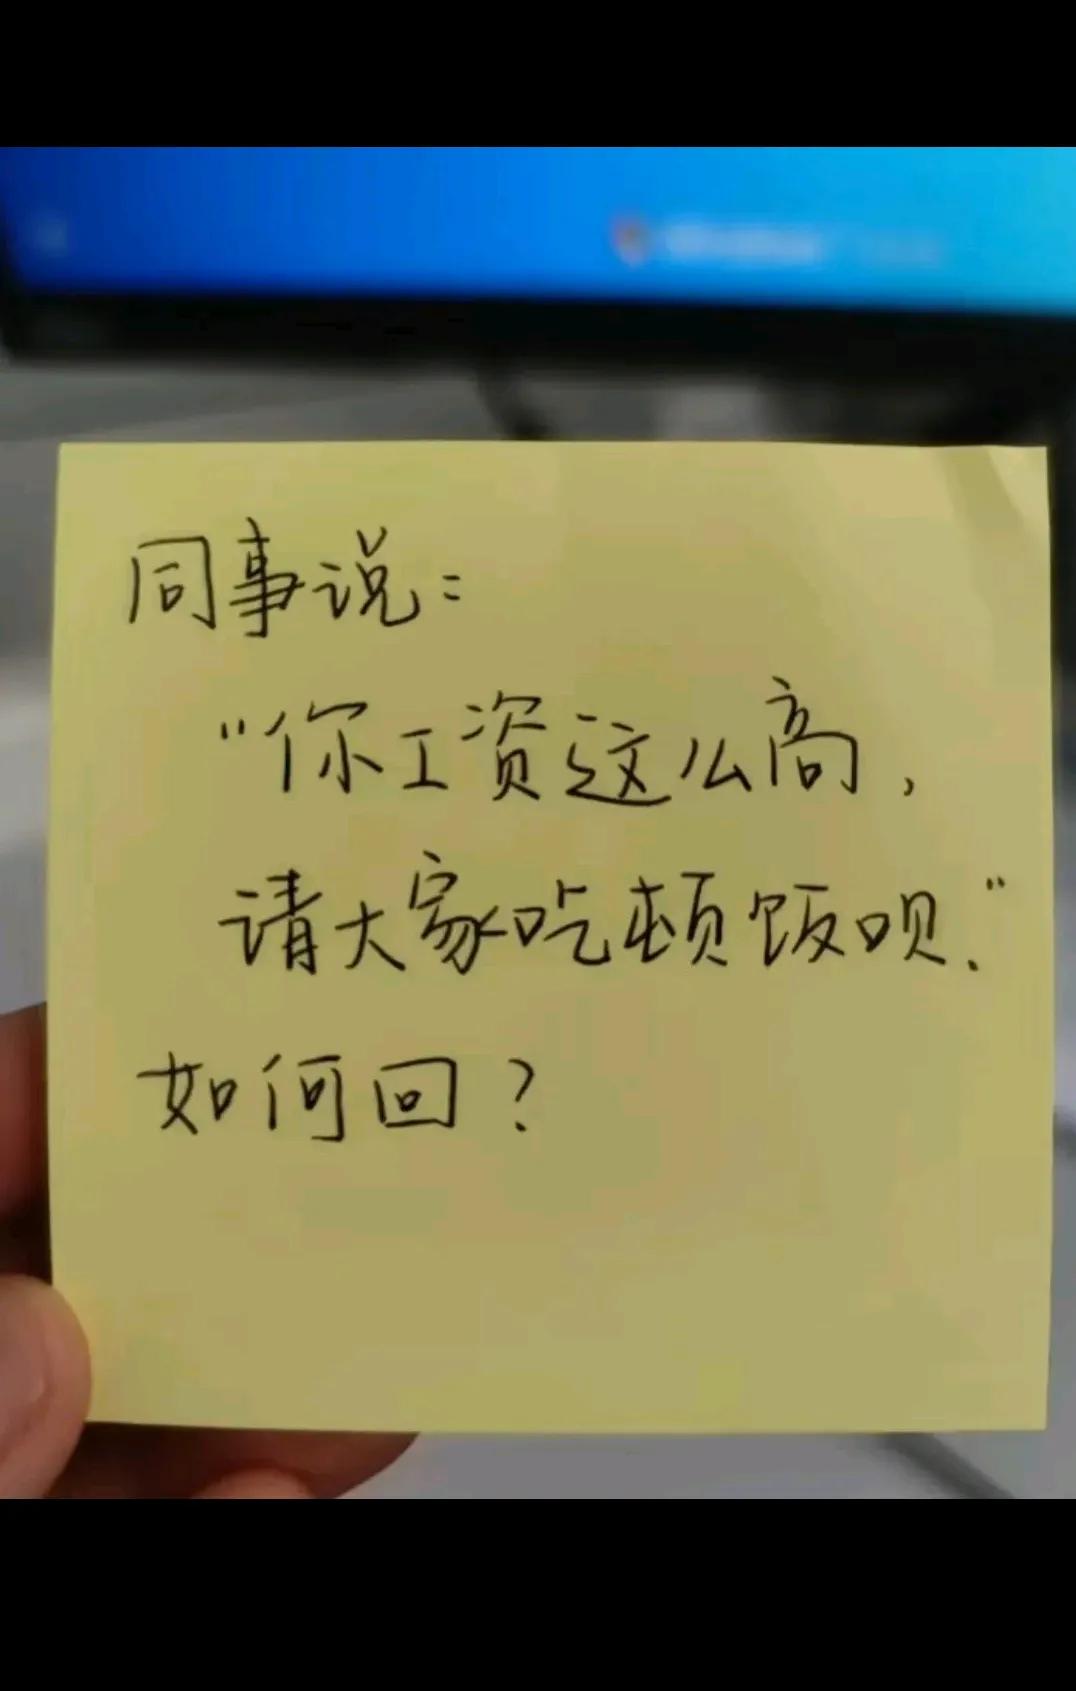 同事说：
“你工资这么高，
请大家吃顿饭呗.”
如何回？